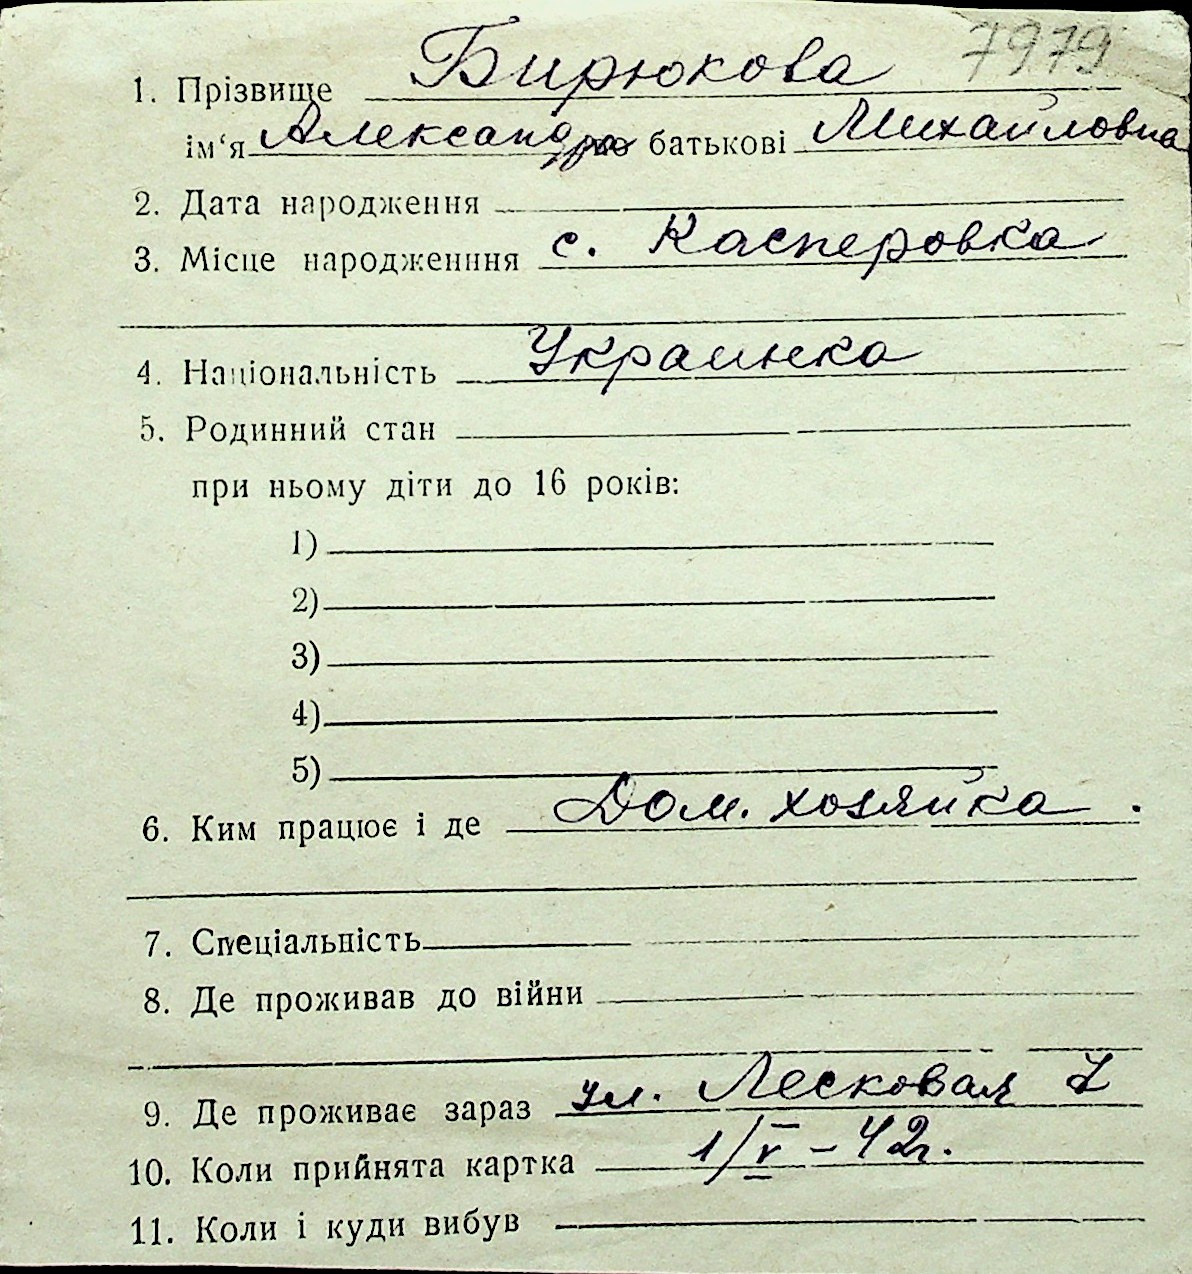 7979
1. Прізвище Бирюкова
ім‘я Александра батькові Михайловна
2. Дата народження
3. Місце народженння с. Касперовка
4. Національність Украинка
5. Родинний стан
при ньому діти до 16 років:
1)
2)
3)
4)
5)
6. Ким працює і де Дом. хозяйка.
7. Спеціальність
8. Де проживав до війни
9. Де проживає зараз ул. Лесковая 7
10. Коли прийнята картка 1/V – 42г.
11. Коли і куди вибув